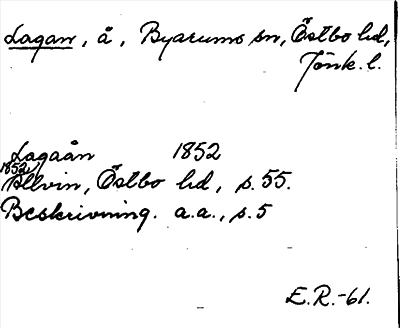 Lagan, å, Byarums sn, Östbo hd,
Jönk. l.
Lagaån 1852
1852/
Allvin, Östbo hd, s. 55.
Beskrivning. a.a., s. 5
E.R.-61.